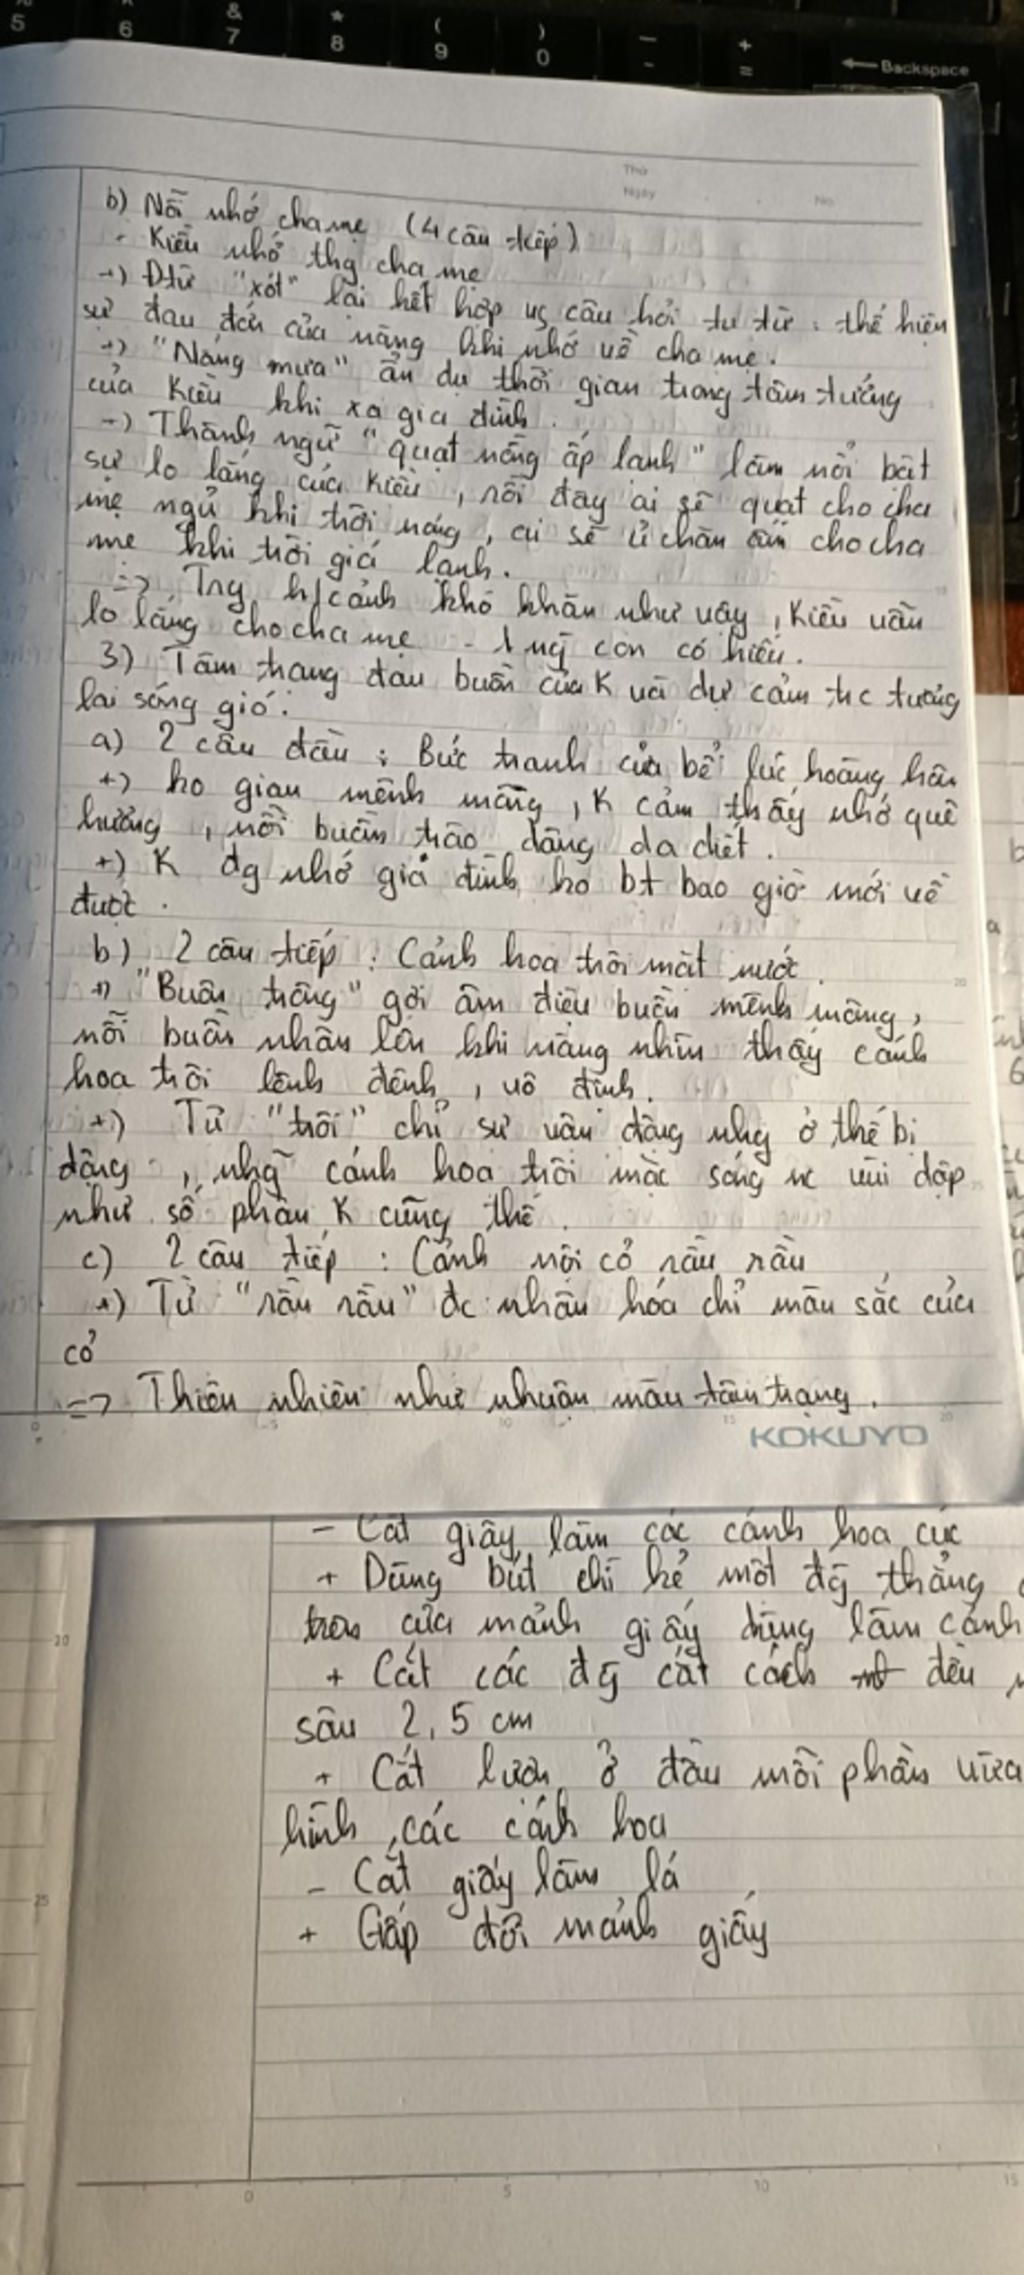 5 6 & 7 * 8 ( 9 ) 0 — - + = ← Backspace
Thứ
Ngày No.
b) Nỗi nhớ cha mẹ (4 câu tiếp)
- Kiều nhớ thg cha mẹ
+) Đtừ "xót" lại kết hợp vs câu hỏi tu từ : thể hiện
sự đau đớn của nàng khi nhớ về cha mẹ.
+) "Nắng mưa" ẩn dụ thời gian trong tâm tưởng
của Kiều khi xa gia đình.
+) Thành ngữ "quạt nồng ấp lạnh" làm nổi bật
sự lo lắng của Kiều, rồi đây ai sẽ quạt cho cha
mẹ ngủ khi trời nóng, ai sẽ ủ chăn ấm cho cha
mẹ khi trời giá lạnh.
=> Trg h/cảnh khó khăn như vậy, Kiều vẫn
lo lắng cho cha mẹ - 1 ng con có hiếu.
3) Tâm trạng đau buồn của K và dự cảm tic tương
lai sóng gió:
a) 2 câu đầu : Bức tranh cửa bể lúc hoàng hôn
+) ko gian mênh mông, K cảm thấy nhớ quê
hương, nỗi buồn trào dâng da diết.
+) K đg nhớ gia đình ko bt bao giờ mới về
được.
b) 2 câu tiếp : Cảnh hoa trôi mặt nước.
+) "Buồn trông" gợi âm điệu buồn mênh mông,
nỗi buồn nhân lên khi nàng nhìn thấy cánh
hoa trôi lênh đênh, vô định.
+) Từ "trôi" chỉ sự vận động nhg ở thế bị
động, nhg cánh hoa trôi mặc sóng nc vùi dập
như số phận K cũng thế.
c) 2 câu tiếp : Cảnh nội cỏ rầu rầu
+) Từ "rầu rầu" đc nhân hóa chỉ màu sắc của
cỏ
=> Thiên nhiên như nhuốm màu tâm trạng.
0 5 10 15 20
KOKUYO
- Cắt giấy làm các cánh hoa cúc
+ Dùng bút chì kẻ một đg thẳng
trên của mảnh giấy dùng làm cánh
+ Cắt các đg cắt cách đều
sâu 2,5 cm
+ Cắt lượn ở đầu mỗi phần vừa
hình các cánh hoa
- Cắt giấy làm lá
+ Gấp đôi mảnh giấy
0 5 10 15